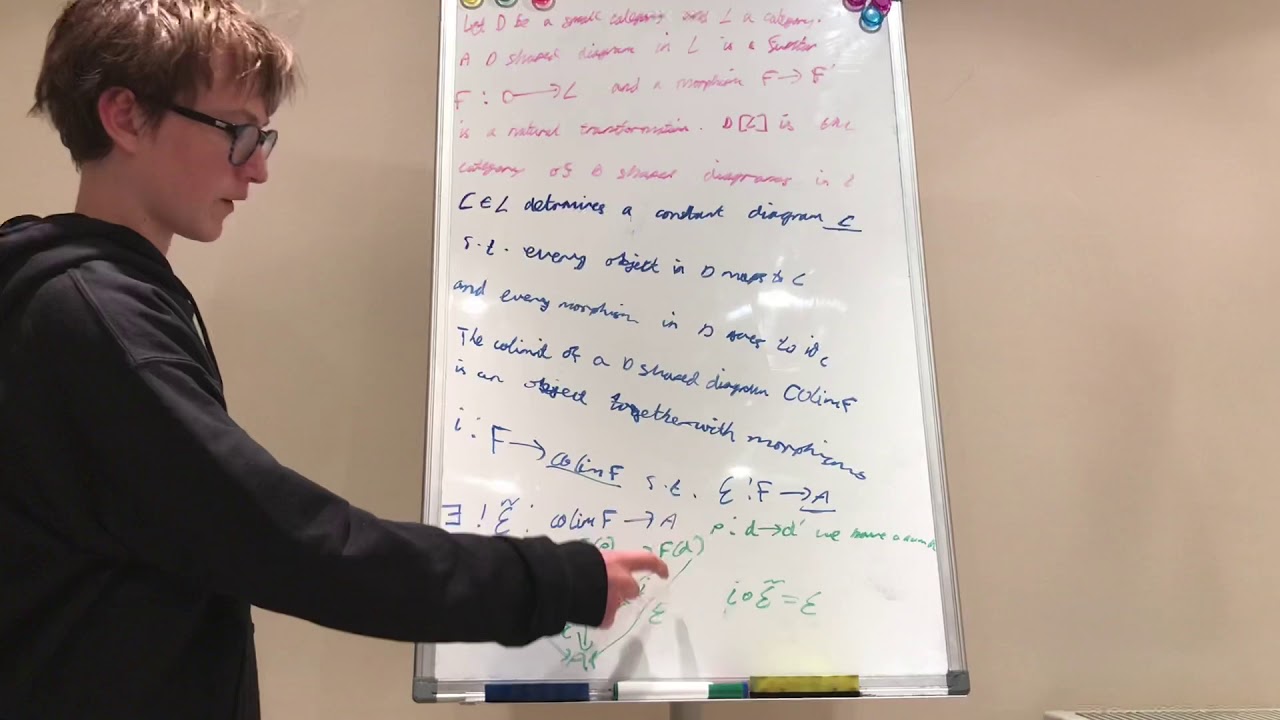 Let D be a small category and L a category.
A D shaped diagram in L is a functor
F : D → L and a morphism F → F'
is a natural transformation. D[L] is the
category of D shaped diagrams in L
C ∈ L determines a constant diagram C
s.t. every object in D maps to C
and every morphism in D goes to id_C
The colimit of a D shaped diagram COlimF
is an object together with morphisms
i : F → colimF s.t. ξ : F → A
∃ ! ξ̃ : colimF → A
p : d → d' we have a
F(d)
i
ξ
i o ξ̃ = ξ
A